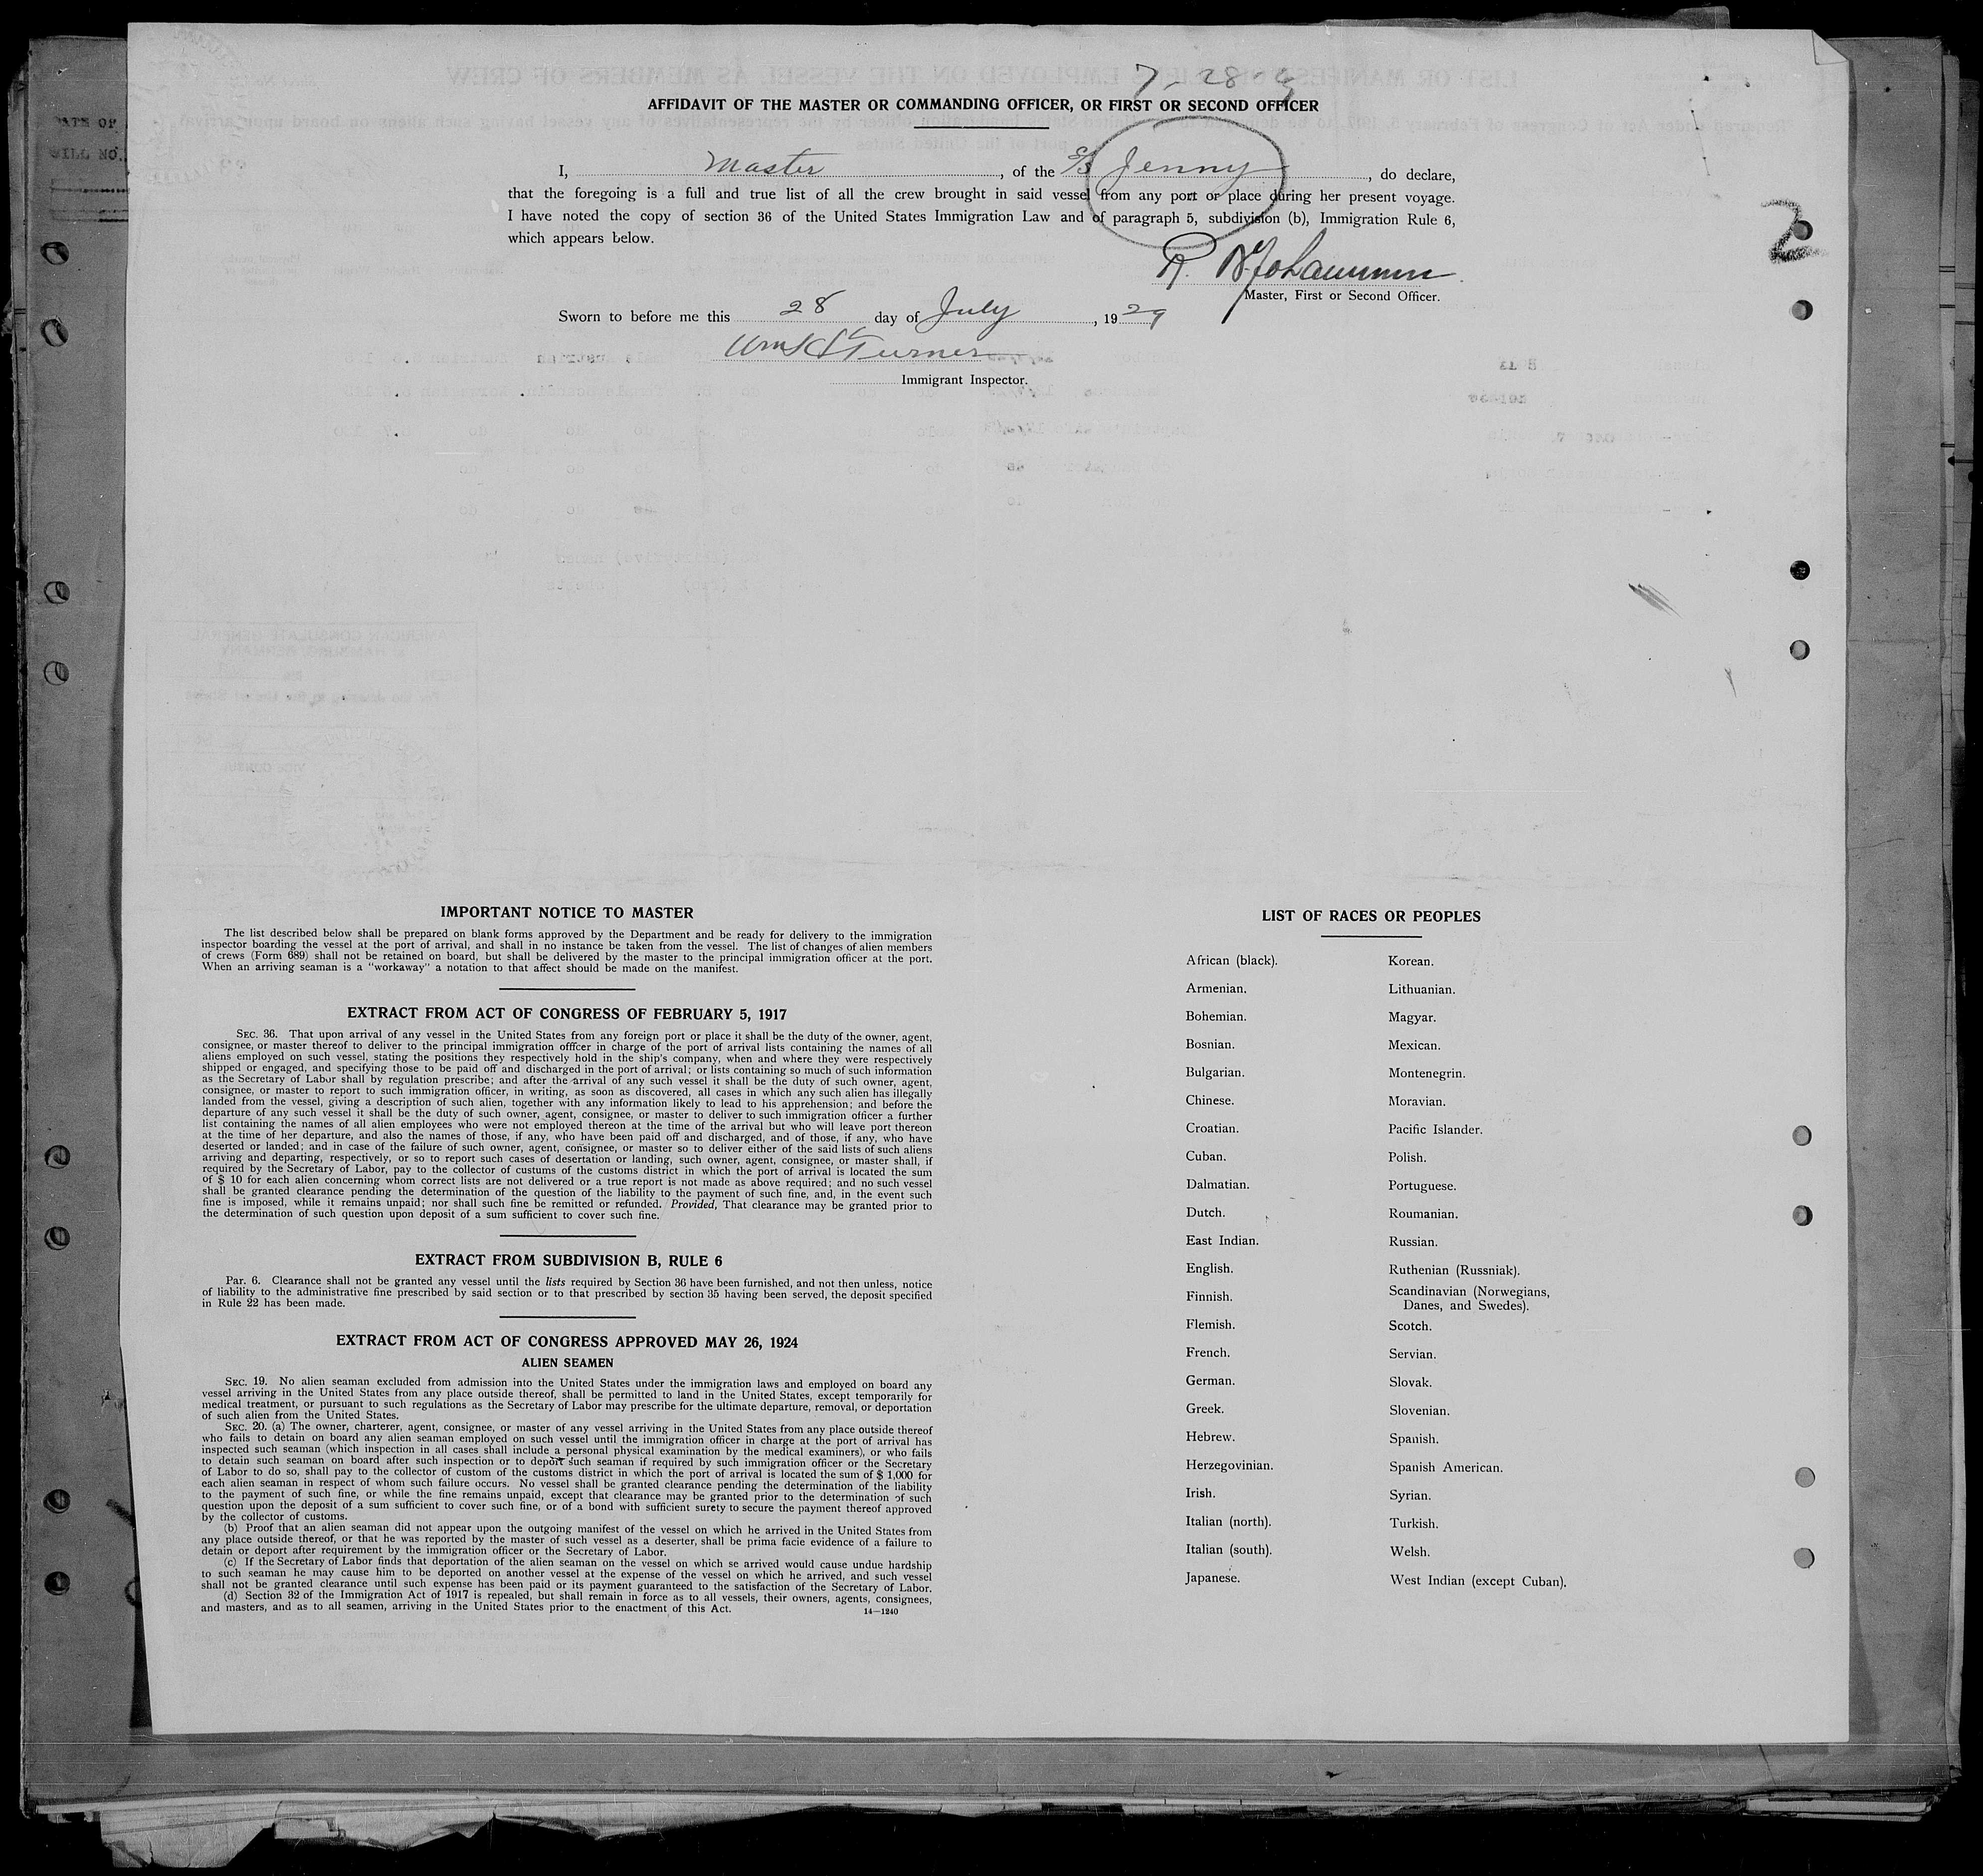 7-28-9
AFFIDAVIT OF THE MASTER OR COMMANDING OFFICER, OR FIRST OR SECOND OFFICER
I, Master, of the S/S Jenny, do declare,
that the foregoing is a full and true list of all the crew brought in said vessel from any port or place during her present voyage.
I have noted the copy of section 36 of the United States Immigration Law and of paragraph 5, subdivision (b), Immigration Rule 6,
which appears below.
2
R.
Master, First or Second Officer.
Sworn to before me this 28 day of July, 1929
Turner
Immigrant Inspector.
IMPORTANT NOTICE TO MASTER
The list described below shall be prepared on blank forms approved by the Department and be ready for delivery to the immigration
inspector boarding the vessel at the port of arrival, and shall in no instance be taken from the vessel. The list of changes of alien members
of crews (Form 689) shall not be retained on board, but shall be delivered by the master to the principal immigration officer at the port.
When an arriving seaman is a "workaway" a notation to that affect should be made on the manifest.
EXTRACT FROM ACT OF CONGRESS OF FEBRUARY 5, 1917
SEC. 36. That upon arrival of any vessel in the United States from any foreign port or place it shall be the duty of the owner, agent,
consignee, or master thereof to deliver to the principal immigration offfcer in charge of the port of arrival lists containing the names of all
aliens employed on such vessel, stating the positions they respectively hold in the ship's company, when and where they were respectively
shipped or engaged, and specifying those to be paid off and discharged in the port of arrival; or lists containing so much of such information
as the Secretary of Labor shall by regulation prescribe; and after the arrival of any such vessel it shall be the duty of such owner, agent,
consignee, or master to report to such immigration officer, in writing, as soon as discovered, all cases in which any such alien has illegally
landed from the vessel, giving a description of such alien, together with any information likely to lead to his apprehension; and before the
departure of any such vessel it shall be the duty of such owner, agent, consignee, or master to deliver to such immigration officer a further
list containing the names of all alien employees who were not employed thereon at the time of the arrival but who will leave port thereon
at the time of her departure, and also the names of those, if any, who have been paid off and discharged, and of those, if any, who have
deserted or landed; and in case of the failure of such owner, agent, consignee, or master so to deliver either of the said lists of such aliens
arriving and departing, respectively, or so to report such cases of desertation or landing, such owner, agent, consignee, or master shall, if
required by the Secretary of Labor, pay to the collector of custums of the customs district in which the port of arrival is located the sum
of $ 10 for each alien concerning whom correct lists are not delivered or a true report is not made as above required; and no such vessel
shall be granted clearance pending the determination of the question of the liability to the payment of such fine, and, in the event such
fine is imposed, while it remains unpaid; nor shall such fine be remitted or refunded. Provided, That clearance may be granted prior to
the determination of such question upon deposit of a sum sufficient to cover such fine.
EXTRACT FROM SUBDIVISION B, RULE 6
Par. 6. Clearance shall not be granted any vessel until the lists required by Section 36 have been furnished, and not then unless, notice
of liability to the administrative fine prescribed by said section or to that prescribed by section 35 having been served, the deposit specified
in Rule 22 has been made.
EXTRACT FROM ACT OF CONGRESS APPROVED MAY 26, 1924
ALIEN SEAMEN
SEC. 19. No alien seaman excluded from admission into the United States under the immigration laws and employed on board any
vessel arriving in the United States from any place outside thereof, shall be permitted to land in the United States, except temporarily for
medical treatment, or pursuant to such regulations as the Secretary of Labor may prescribe for the ultimate departure, removal, or deportation
of such alien from the United States.
SEC. 20. (a) The owner, charterer, agent, consignee, or master of any vessel arriving in the United States from any place outside thereof
who fails to detain on board any alien seaman employed on such vessel until the immigration officer in charge at the port of arrival has
inspected such seaman (which inspection in all cases shall include a personal physical examination by the medical examiners), or who fails
to detain such seaman on board after such inspection or to deport such seaman if required by such immigration officer or the Secretary
of Labor to do so, shall pay to the collector of custom of the customs district in which the port of arrival is located the sum of $ 1,000 for
each alien seaman in respect of whom such failure occurs. No vessel shall be granted clearance pending the determination of the liability
to the payment of such fine, or while the fine remains unpaid, except that clearance may be granted prior to the determination of such
question upon the deposit of a sum sufficient to cover such fine, or of a bond with sufficient surety to secure the payment thereof approved
by the collector of customs.
(b) Proof that an alien seaman did not appear upon the outgoing manifest of the vessel on which he arrived in the United States from
any place outside thereof, or that he was reported by the master of such vessel as a deserter, shall be prima facie evidence of a failure to
detain or deport after requirement by the immigration officer or the Secretary of Labor.
(c) If the Secretary of Labor finds that deportation of the alien seaman on the vessel on which se arrived would cause undue hardship
to such seaman he may cause him to be deported on another vessel at the expense of the vessel on which he arrived, and such vessel
shall not be granted clearance until such expense has been paid or its payment guaranteed to the satisfaction of the Secretary of Labor.
(d) Section 32 of the Immigration Act of 1917 is repealed, but shall remain in force as to all vessels, their owners, agents, consignees,
and masters, and as to all seamen, arriving in the United States prior to the enactment of this Act.
14—1240
LIST OF RACES OR PEOPLES
African (black).
Armenian.
Bohemian.
Bosnian.
Bulgarian.
Chinese.
Croatian.
Cuban.
Dalmatian.
Dutch.
East Indian.
English.
Finnish.
Flemish.
French.
German.
Greek.
Hebrew.
Herzegovinian.
Irish.
Italian (north).
Italian (south).
Japanese.
Korean.
Lithuanian.
Magyar.
Mexican.
Montenegrin.
Moravian.
Pacific Islander.
Polish.
Portuguese.
Roumanian.
Russian.
Ruthenian (Russniak).
Scandinavian (Norwegians,
Danes, and Swedes).
Scotch.
Servian.
Slovak.
Slovenian.
Spanish.
Spanish American.
Syrian.
Turkish.
Welsh.
West Indian (except Cuban).